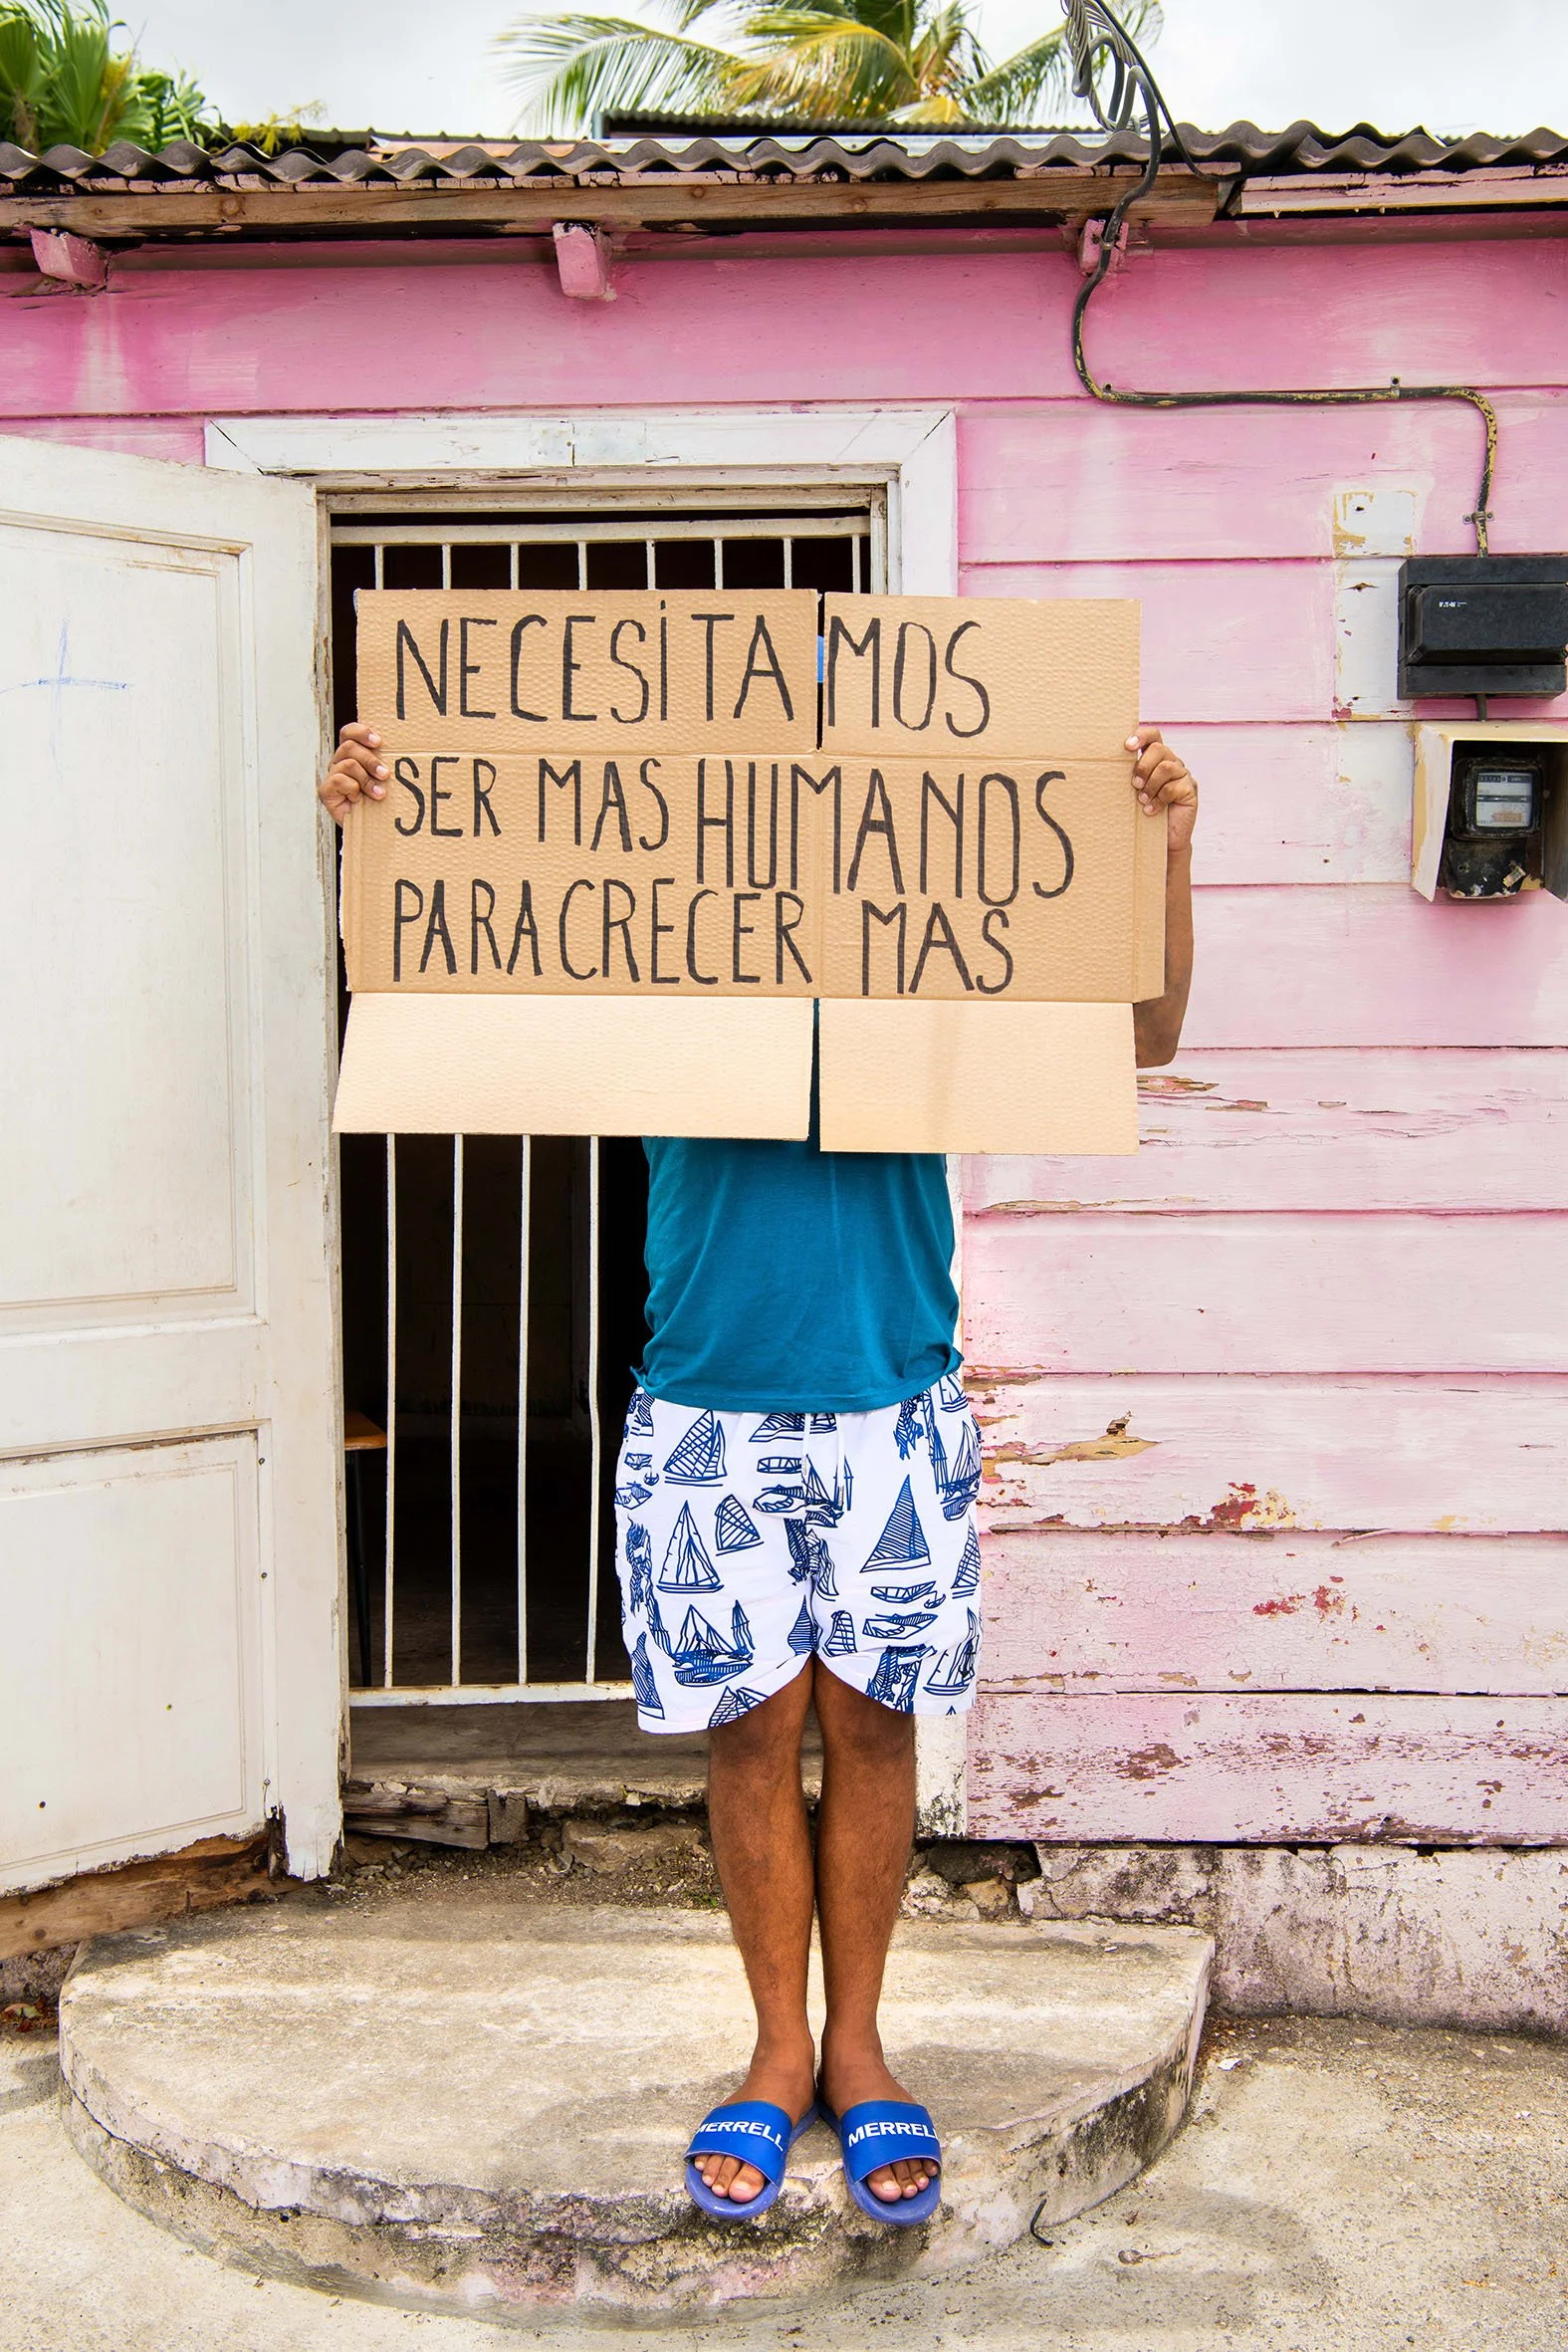 NECESiTAMOS
SER MAS HUMANOS
PARA CRECER MAS
MERRELL MERRELL